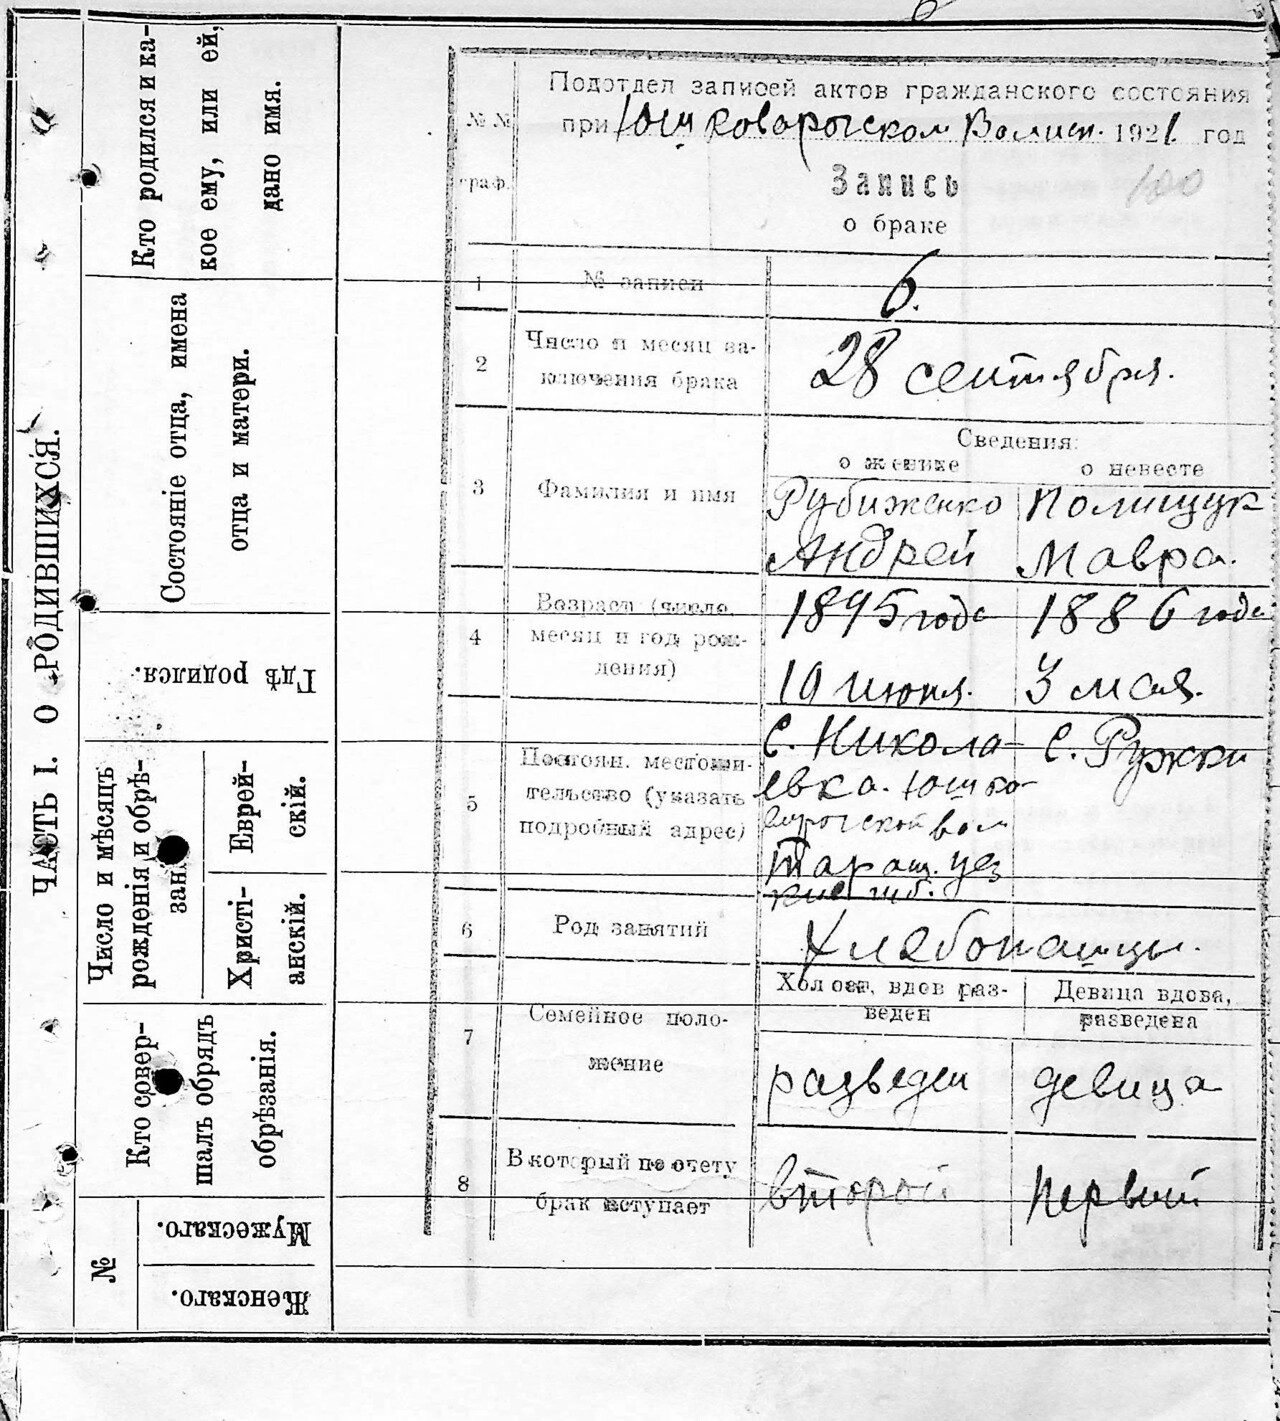 ЧАСТЬ I. О РОДИВШИХСЯ.
Кто родился и ка-
кое ему, или ей,
дано имя.
Состояніе отца, имена
отца и матери.
Гдѣ родился.
Число и мѣсяцъ
рожденія и обрѣ-
зан
Еврей-
скій.
Христі-
анскій.
Кто совер-
шалъ обрядъ
обрѣзанія.
№
Мужескаго.
Женскаго.
№ №
граф.
Подотдел записей актов гражданского состояния
при Юшковорогском Волисп. 1921 год
Запись
100
о браке
1
№ записи
6.
2
Число и месяц за-
ключения брака
28 сентября.
Сведения:
о женихе
о невесте
3
Фамилия и имя
Рубиженко
Андрей
Полищук
Мавра.
4
Возраст (число,
месяц и год рож-
дения)
1895 года
19 июня.
1886 года
3 мая.
5
Постоян. местожи-
тельство (указать
подробный адрес)
с. Никола-
евка. Юшко-
ворогской вол
Таращ. уез
Киев губ.
с. Ружки
6
Род занятий
Хлебопашцы.
7
Семейное поло-
жение
Холост, вдов раз-
веден
Девица вдова,
разведена
разведен
девица
8
В который по счету
брак вступает
второй
первый